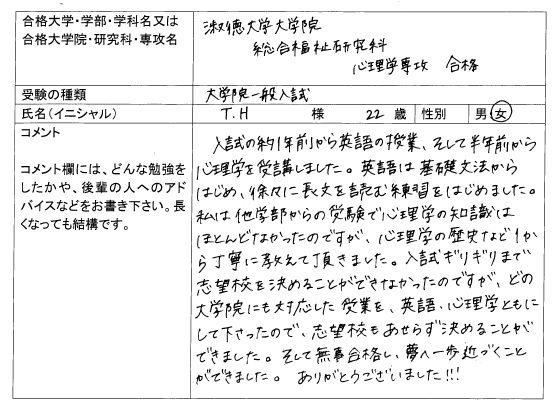 合格大学・学部・学科名又は
合格大学院・研究科・専攻名
淑徳大学大学院
総合福祉研究科
心理学専攻 合格
受験の種類
大学院一般入試
氏名（イニシャル）
T.H 様 22 歳 性別 男・女
コメント
コメント欄には、どんな勉強を
したかや、後輩の人へのアド
バイスなどをお書き下さい。長
くなっても結構です。
入試の約1年前から英語の授業、そして半年前から
心理学を受講しました。英語は基礎文法から
はじめ、徐々に長文を読む練習をはじめました。
私は他学部からの受験で心理学の知識は
ほとんどなかったのですが、心理学の歴史など1か
ら丁寧に教えて頂きました。入試ギリギリまで
志望校を決めることができなかったのですが、どの
大学院にも対応した授業を、英語・心理学ともに
して下さったので、志望校もあせらず決めることが
できました。そして無事合格し、夢へ一歩近づくこと
ができました。 ありがとうございました!!!